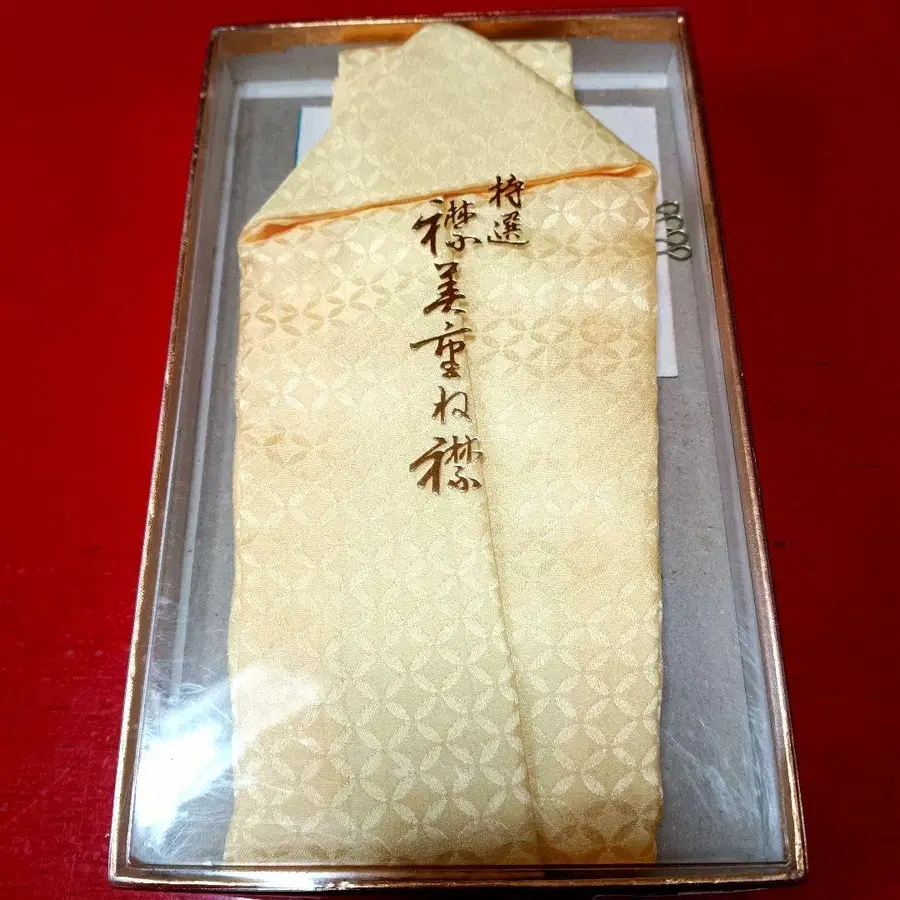 特選
襟美重ね襟